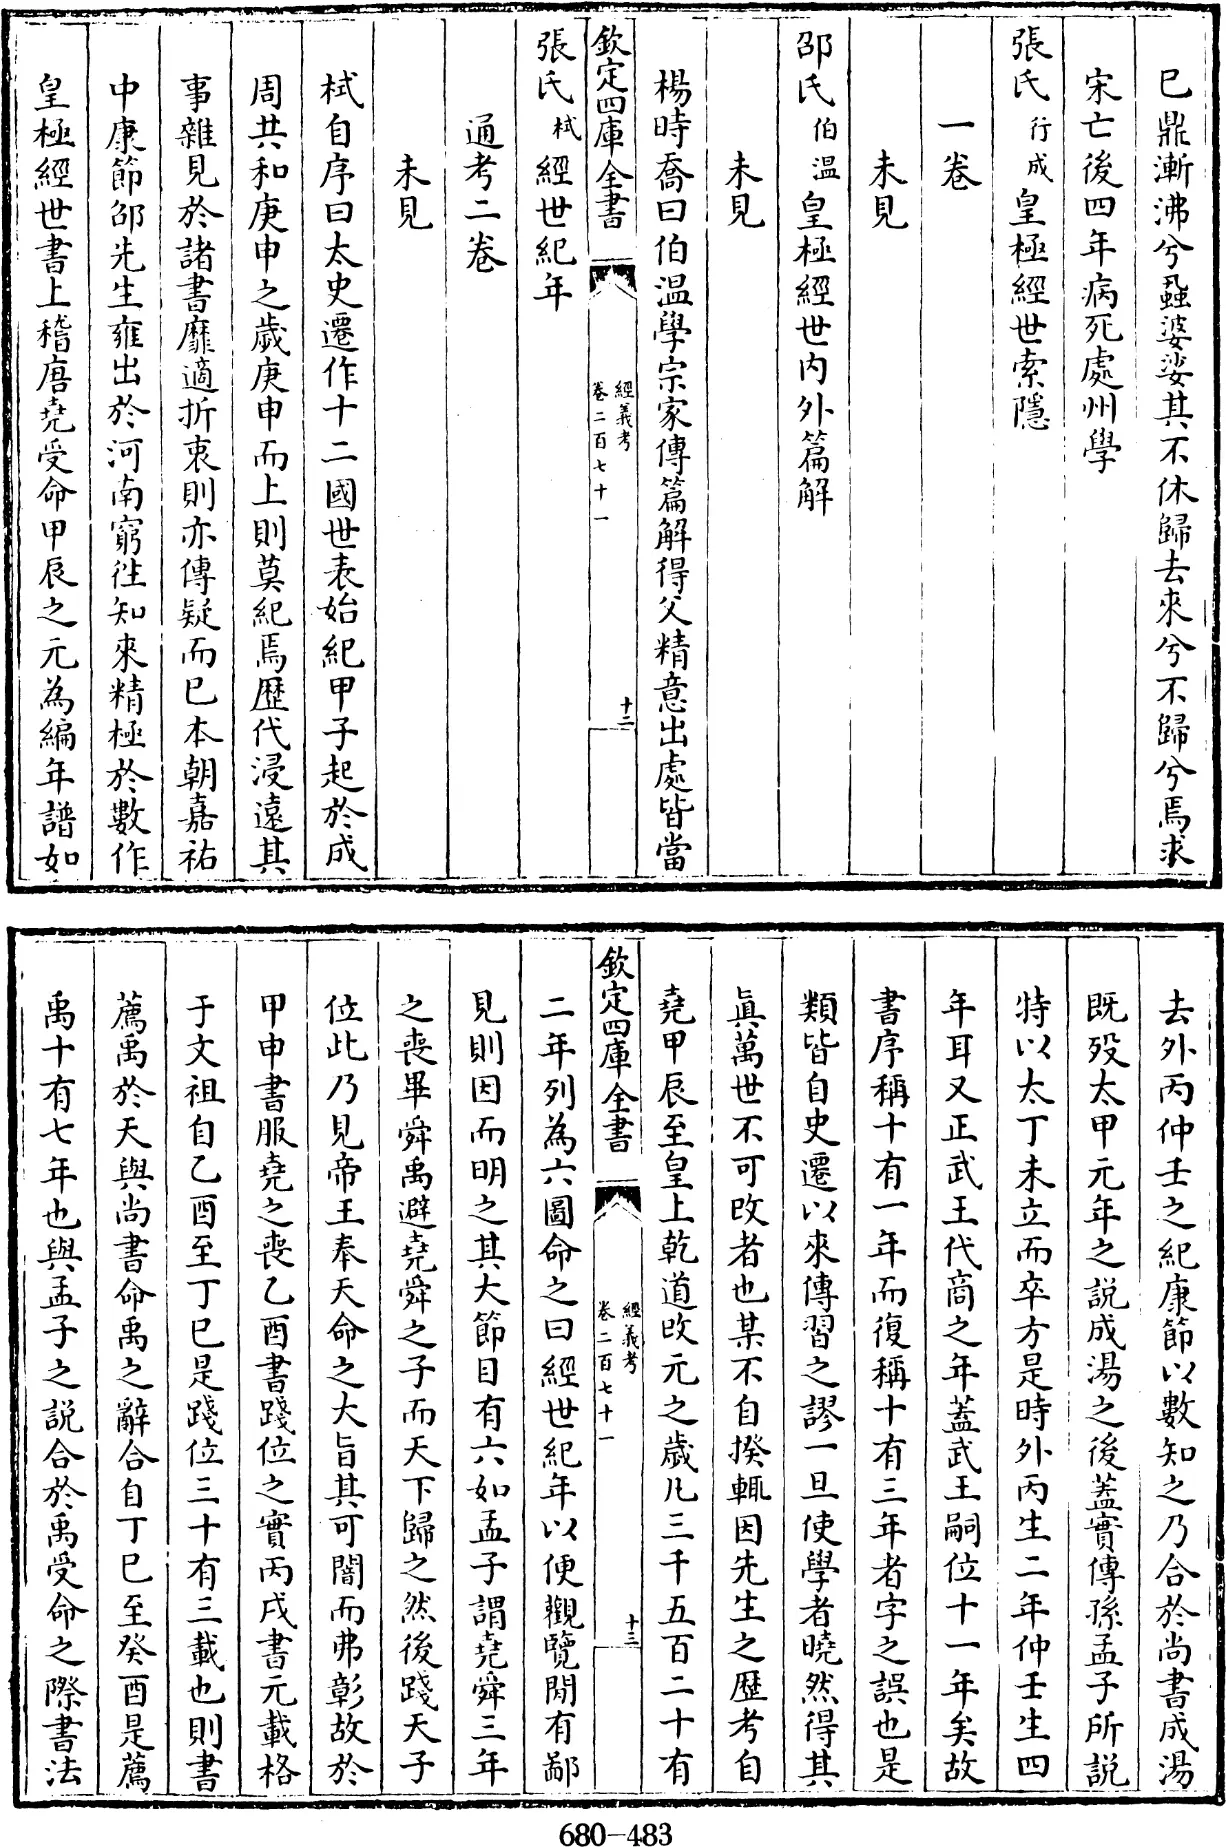 已鼎漸沸兮蝨婆娑其不休歸去來兮不歸兮焉求
宋亡後四年病死處州學
張氏行成皇極經世索隱
一卷
未見
邵氏伯溫皇極經世内外篇解
未見
楊時喬曰伯温學宗家傳篇解得父精意出處皆當
欽定四庫全書
經義考
卷二百七十一
十二
張氏栻經世紀年
通考二卷
未見
栻自序曰太史遷作十二國世表始紀甲子起於成
周共和庚申之歲庚申而上則莫紀焉歴代浸遠其
事雜見於諸書靡適折衷則亦傳疑而已本朝嘉祐
中康節邵先生雍出於河南窮徃知來精極於數作
皇極經世書上稽唐堯受命甲辰之元為編年譜如
去外丙仲壬之紀康節以數知之乃合於尚書成湯
既歿太甲元年之説成湯之後蓋實傳孫孟子所説
特以太丁未立而卒方是時外丙生二年仲壬生四
年耳又正武王代商之年蓋武王嗣位十一年矣故
書序稱十有一年而復稱十有三年者字之誤也是
類皆自史遷以來傳習之謬一旦使學者曉然得其
眞萬世不可改者也某不自揆輒因先生之歴考自
堯甲辰至皇上乾道改元之歲凡三千五百二十有
欽定四庫全書
經義考
卷二百七十一
十三
二年列為六圖命之曰經世紀年以便觀覽間有鄙
見則因而明之其大節目有六如孟子謂堯舜三年
之喪畢舜禹避堯舜之子而天下歸之然後踐天子
位此乃見帝王奉天命之大旨其可闇而弗彰故於
甲申書服堯之喪乙酉書踐位之實丙戌書元載格
于文祖自乙酉至丁巳是踐位三十有三載也則書
薦禹於天與尚書命禹之辭合自丁巳至癸酉是薦
禹十有七年也與孟子之説合於禹受命之際書法
680-483